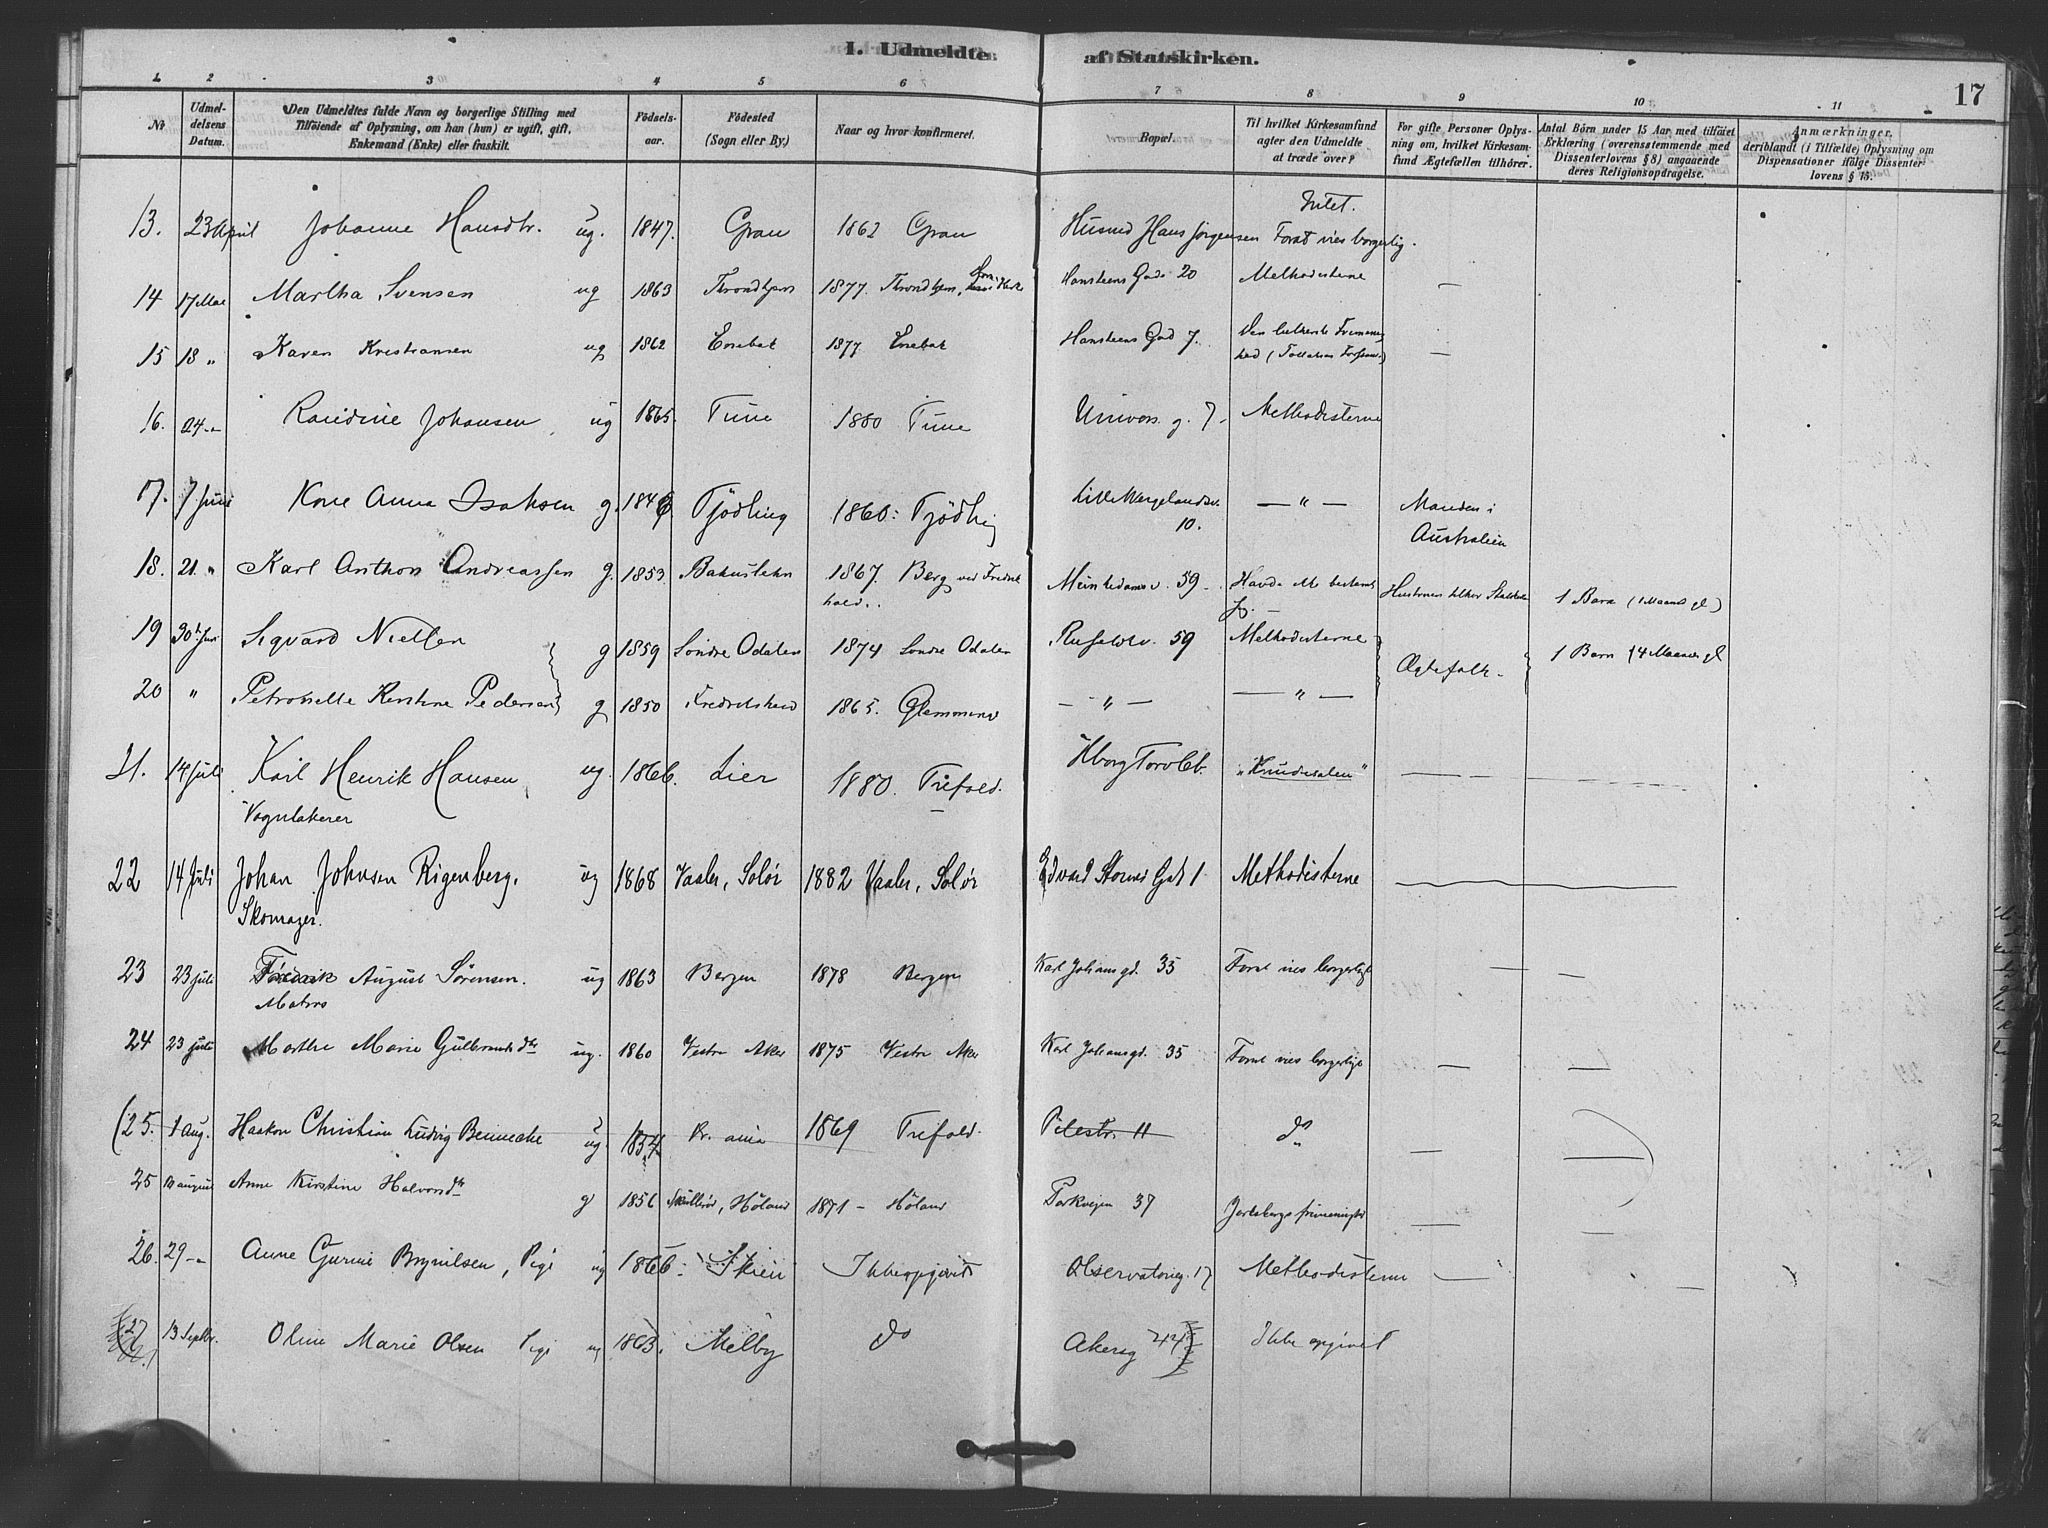 I. Udmeldte af Statskirken.
17
1 2 3 4 5 6 7 8 9 10 11
No
Udmeldelsens Datum.
Den Udmeldtes fulde Navn og borgerlige Stilling med Tilföiende af Oplysning, om han (hun) er ugift, gift, Enkemand (Enke) eller fraskilt.
Födselsaar.
Födested (Sogn eller By.)
Naar og hvor konfirmeret.
Bopæl.
Til hvilket Kirkesamfund agter den Udmeldte at træde over?
For gifte Personer Oplysning om, hvilket Kirkesamfund Ægtefællen tilhörer.
Antal Börn under 15 Aar med tilföiet Erklæring (overensstemmende med Dissenterlovens § 8) angaaende deres Religionsopdragelse.
Anmærkninger, deriblandt (i Tilfælde) Oplysning om Dispensationer ifölge Dissenterlovens § 15.
Intet.
13. 23 April Johanne Hansdtr. ug. 1847. Gran 1862 Gran Husmd Hans Jørgensen Forat vies borgerlig.
14 17 Mai Martha Svensen ug 1863 Throndhjem 1877. Throndhjem, Hansteens Gade 20 Methodisterne —
15 18 „ Karen Kristiansen ug 1862 Enebak 1877 Enebak Hansteens Gad 7. Den lutherske Frimenighed —
16. 24 -„- Randine Johansen ug 1865. Tune 1880 Tune Univers. g. 7 - Methodisterne
17. 7 Juni Kone Anna Isaksen g. 1846 Tjödling 1860: Tjödling Lille Wergelandsv. 10. — „ — Manden i Australien
18. 21. „ Karl Anthon Andreassen g. 1853. 1867. Berg ved Fredrikshald.. Munkedamsv. 59 - 1 Barn (1 Maaned gl)
19 30te Juni Sigvard Nielsen g 1859 Söndre Odalen 1874 Söndre Odalen 59 Methodisterne Ægtefolk - 1 Barn (4 Maaneder gl
20 „ Petronelle Kirstine Pedersen g 1850 Fredrikshald 1865. Glemminge — „ — — „ —
21. 14 Juli Karl Henrik Hansen, ug. 1866. Lier 1880. Trefold. „Krudtsalen" — —
14 Juli
22 Johan Johnsen Rigenberg, ug 1868 Vaaler, Solör 1882 Vaaler, Solör Edvard Storms Gad 1 Methodisterne
Skomager.
23 23 juli Fredrik August Sörensen. ug 1863 Bergen 1878 Bergen Karl Johans gd. 35 Forat vies borgerligt — —
Matros
24 23 juli Marthe Marie Gulbrandsdtr ug. 1860 Vestre Aker 1875 Vestre Aker Karl Johans gd. 35 Forat vies borgerligt — —
(25. 1 Aug. Haakon Christian Ludvig Bennecke ug. 1854 Kr. ania 1869 Trefold. Pilestr. 11 do — — )
25 august Anne Kirstine Halvorsdtr g 1856 Höland 1871 - Höland Parkveien 37 Jarlsbergs frimenighed — —
26. 29 -„ Anne Gurine Brynilsen, Pige ug 1866. Skien Ikke opgivet Observatorieg. 17 Methodisterne — —
(27 13 Septbr. Oline Marie Olsen Pige ug 1863. Melby do Akersg 44 Ikke opgivet